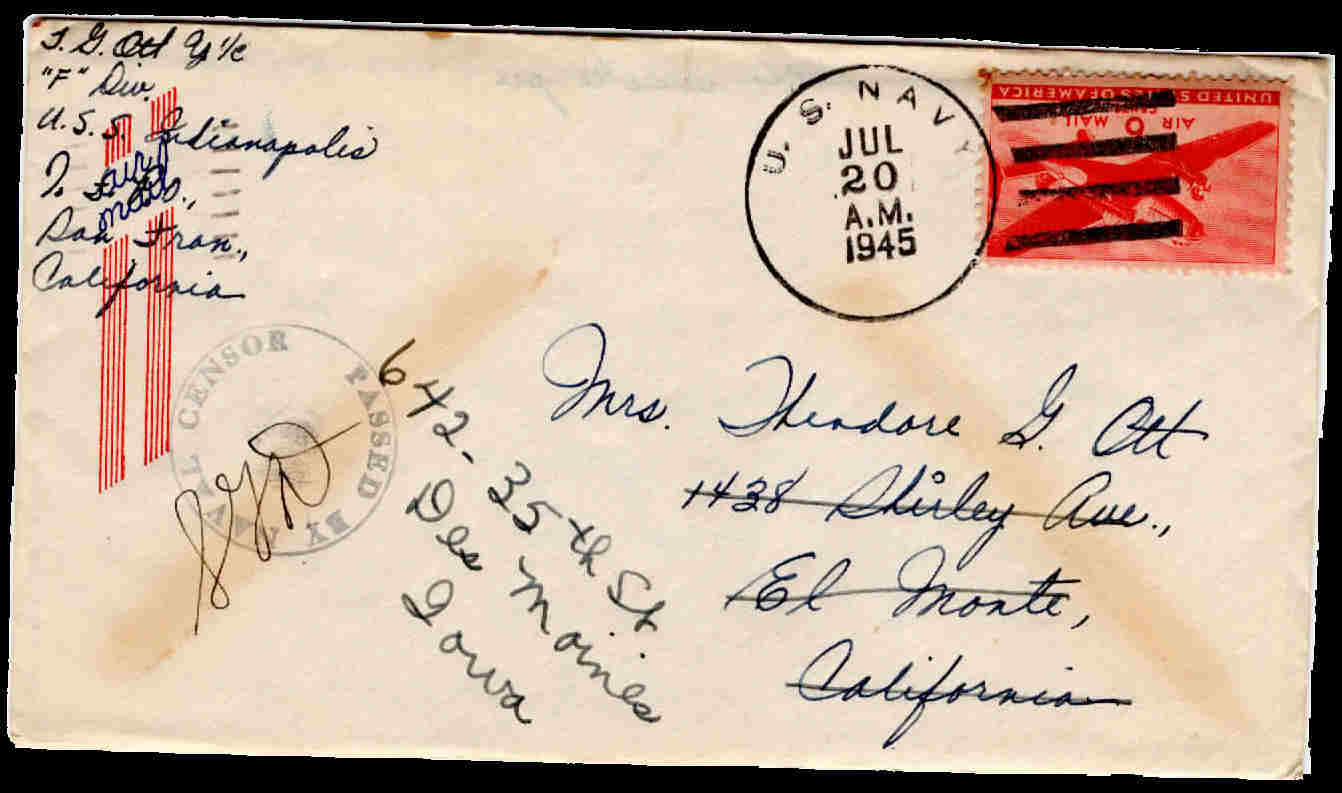 T. G. Ott Y 1/c
"F" Div.
U.S.S. Indianapolis
air
mail
San Fran.,
California
U.S. NAVY
JUL
20
A.M.
1945
UNITED STATES OF AMERICA
AIR MAIL
PASSED BY NAVAL CENSOR
Mrs. Theodore G. Ott
1438 Shirley Ave.,
El Monte,
California
642-35th St
Des Moines
Iowa